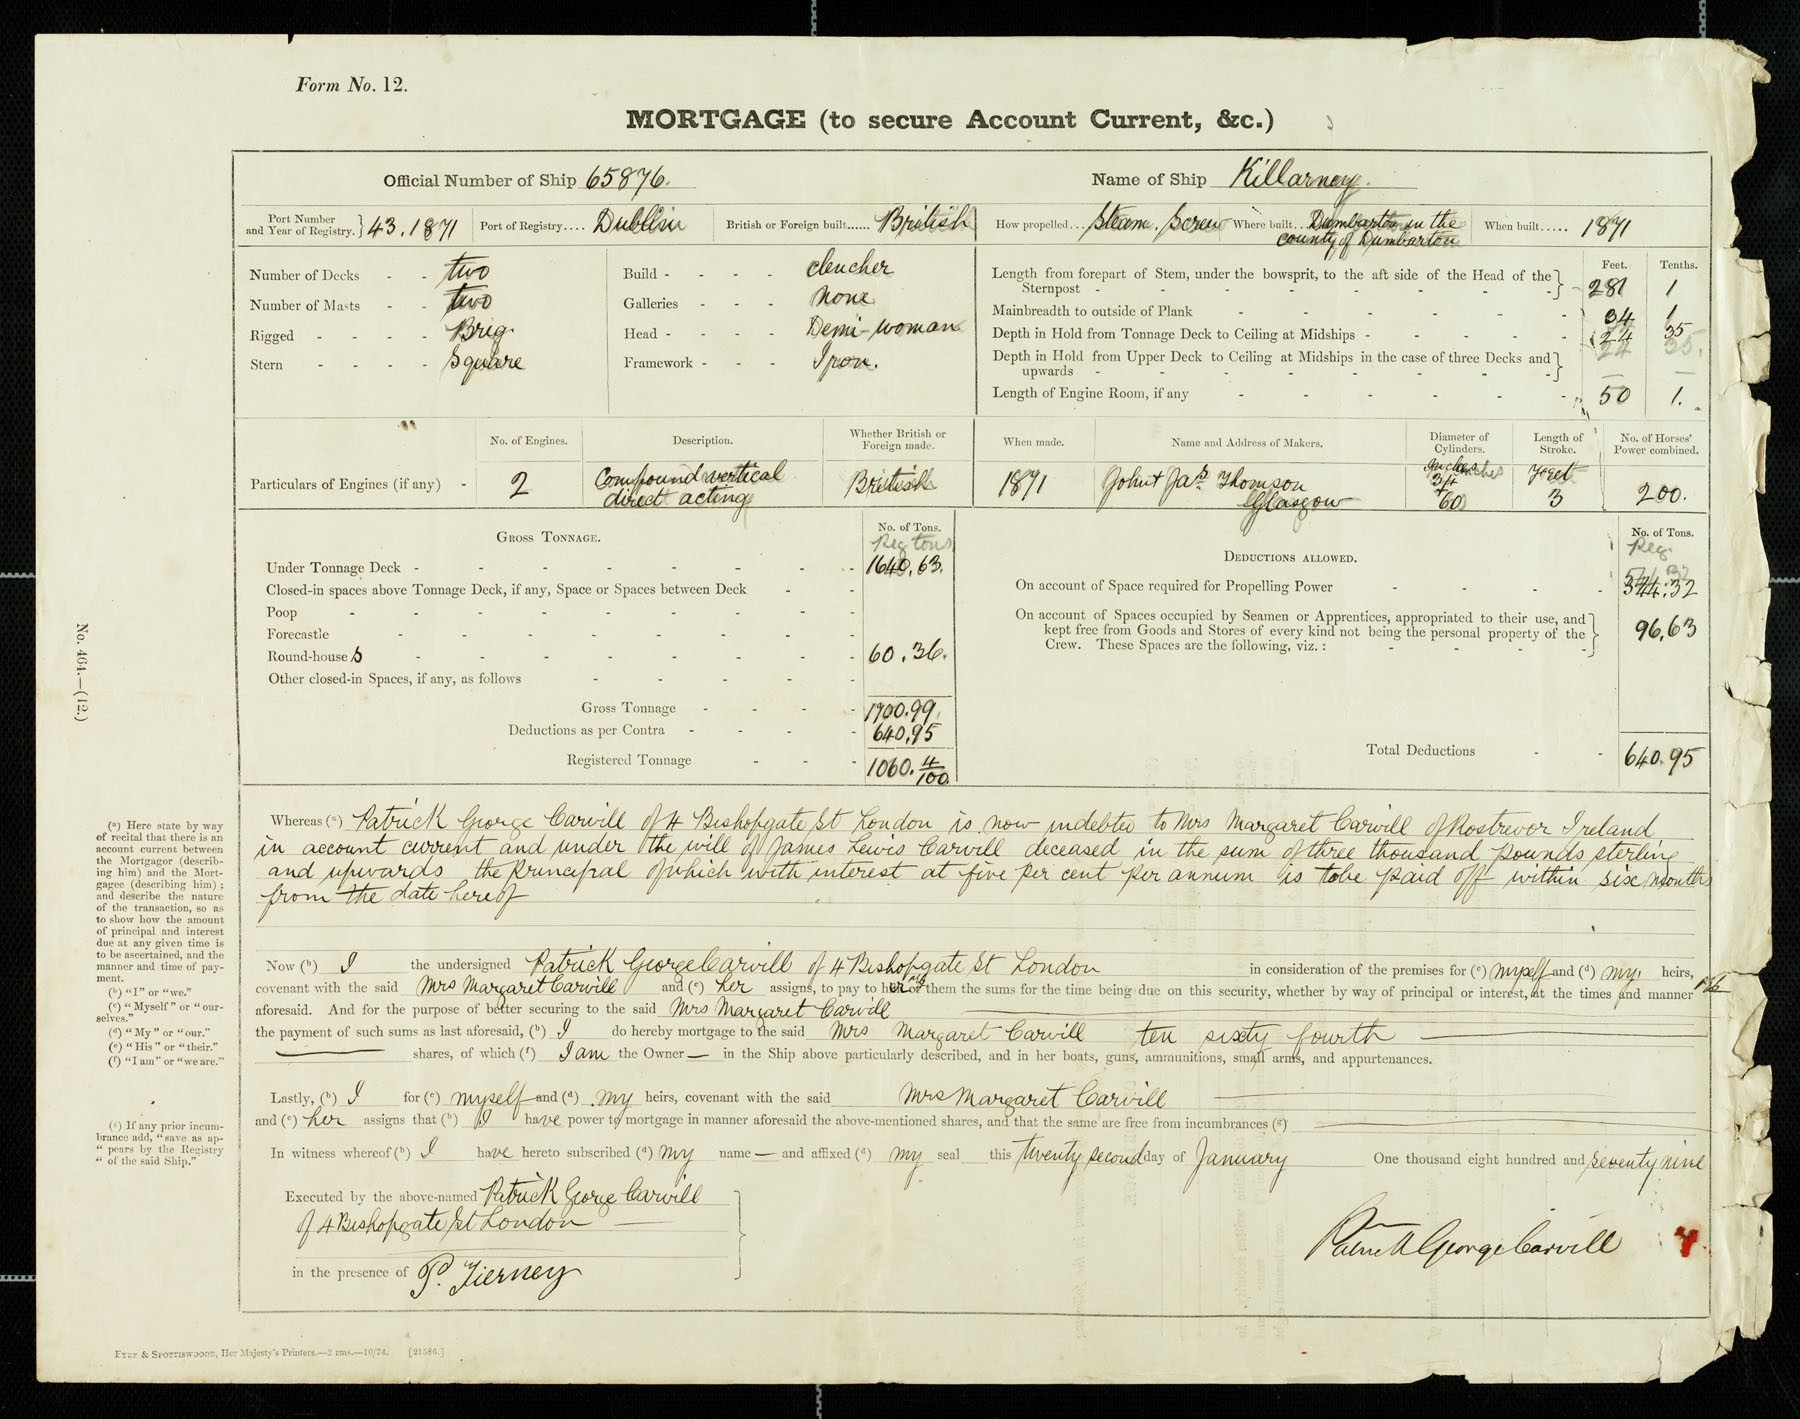 Form No. 12.
MORTGAGE (to secure Account Current, &c.)
Official Number of Ship 65876.
Name of Ship Killarney.
Port Number and Year of Registry. } 43.1871
Port of Registry.... Dublin
British or Foreign built...... British
How propelled... Steam. Screw
Where built.. Dumbarton in the
county of Dumbarton
When built..... 1871
Number of Decks - - two
Number of Masts - - two
Rigged - - - - Brig.
Stern - - - - Square
Build - - - - clencher
Galleries - - - None
Head - - - - Demi-woman
Framework - - - Iron.
Feet. Tenths.
Length from forepart of Stem, under the bowsprit, to the aft side of the Head of the
Sternpost - - - - - - - - } 281 1
Mainbreadth to outside of Plank - - - - - - 34 1
Depth in Hold from Tonnage Deck to Ceiling at Midships - - - - 24 35
Depth in Hold from Upper Deck to Ceiling at Midships in the case of three Decks and
upwards - - - - - - - - }
Length of Engine Room, if any - - - - - - 50 1.
Particulars of Engines (if any) -
No. of Engines.
2
Description.
Compound vertical
direct acting
Whether British or
Foreign made.
British
When made.
1871
Name and Address of Makers.
John & Jas. Thomson
Glasgow
Diameter of
Cylinders.
Inches
60
Length of
Stroke.
Feet
3
No. of Horses'
Power combined.
200.
GROSS TONNAGE.
No. of Tons.
Reg tons
Under Tonnage Deck - - - - - - - - 1640.63.
Closed-in spaces above Tonnage Deck, if any, Space or Spaces between Deck - -
Poop - - - - - - - -
Forecastle - - - - - - -
Round-houses - - - - - - - 60.36.
Other closed-in Spaces, if any, as follows - - - - -
Gross Tonnage - - - - 1700.99.
Deductions as per Contra - - - - 640.95
Registered Tonnage - - - 1060. 4/100.
DEDUCTIONS ALLOWED.
No. of Tons.
Reg.
On account of Space required for Propelling Power - - - - 544.32
On account of Spaces occupied by Seamen or Apprentices, appropriated to their use, and
kept free from Goods and Stores of every kind not being the personal property of the
Crew. These Spaces are the following, viz.: - - - - } 96.63
Total Deductions - - 640.95
Whereas (a) Patrick George Carvill of 4 Bishopgate St London is now indebted to Mrs Margaret Carvill of Rostrevor Ireland
in account current and under the will of James Lewis Carvill deceased in the sum of three thousand pounds sterling
and upwards the principal of which with interest at five per cent per annum is to be paid off within six months
from the date hereof
Now (b) I the undersigned Patrick George Carvill of 4 Bishopgate St London in consideration of the premises for (c) myself and (d) my heirs,
covenant with the said Mrs Margaret Carvill and (e) her assigns, to pay to her or them the sums for the time being due on this security, whether by way of principal or interest, at the times and manner
aforesaid. And for the purpose of better securing to the said Mrs Margaret Carvill
the payment of such sums as last aforesaid, (b) I do hereby mortgage to the said Mrs Margaret Carvill ten sixty fourth
shares, of which (f) I am the Owner — in the Ship above particularly described, and in her boats, guns, ammunitions, small arms, and appurtenances.
Lastly, (b) I for (c) myself and (d) my heirs, covenant with the said Mrs Margaret Carvill
and (e) her assigns that (b) I have power to mortgage in manner aforesaid the above-mentioned shares, and that the same are free from incumbrances (g)
In witness whereof (b) I have hereto subscribed (d) my name — and affixed (d) my seal this twenty second day of January One thousand eight hundred and seventy nine
Executed by the above-named Patrick George Carvill
of 4 Bishopgate St London
in the presence of P. Tierney
Patrick George Carvill
No. 464.—(12.)
(a) Here state by way
of recital that there is an
account current between
the Mortgagor (describ-
ing him) and the Mort-
gagee (describing him);
and describe the nature
of the transaction, so as
to show how the amount
of principal and interest
due at any given time is
to be ascertained, and the
manner and time of pay-
ment.
(b) "I" or "we."
(c) "Myself" or "our-
selves."
(d) "My" or "our."
(e) "His" or "their."
(f) "I am" or "we are."
(g) If any prior incum-
brance add, "save as ap-
"pears by the Registry
"of the said Ship."
EYRE & SPOTTISWOODE, Her Majesty's Printers.—2 rms.—10/74. [21586.]